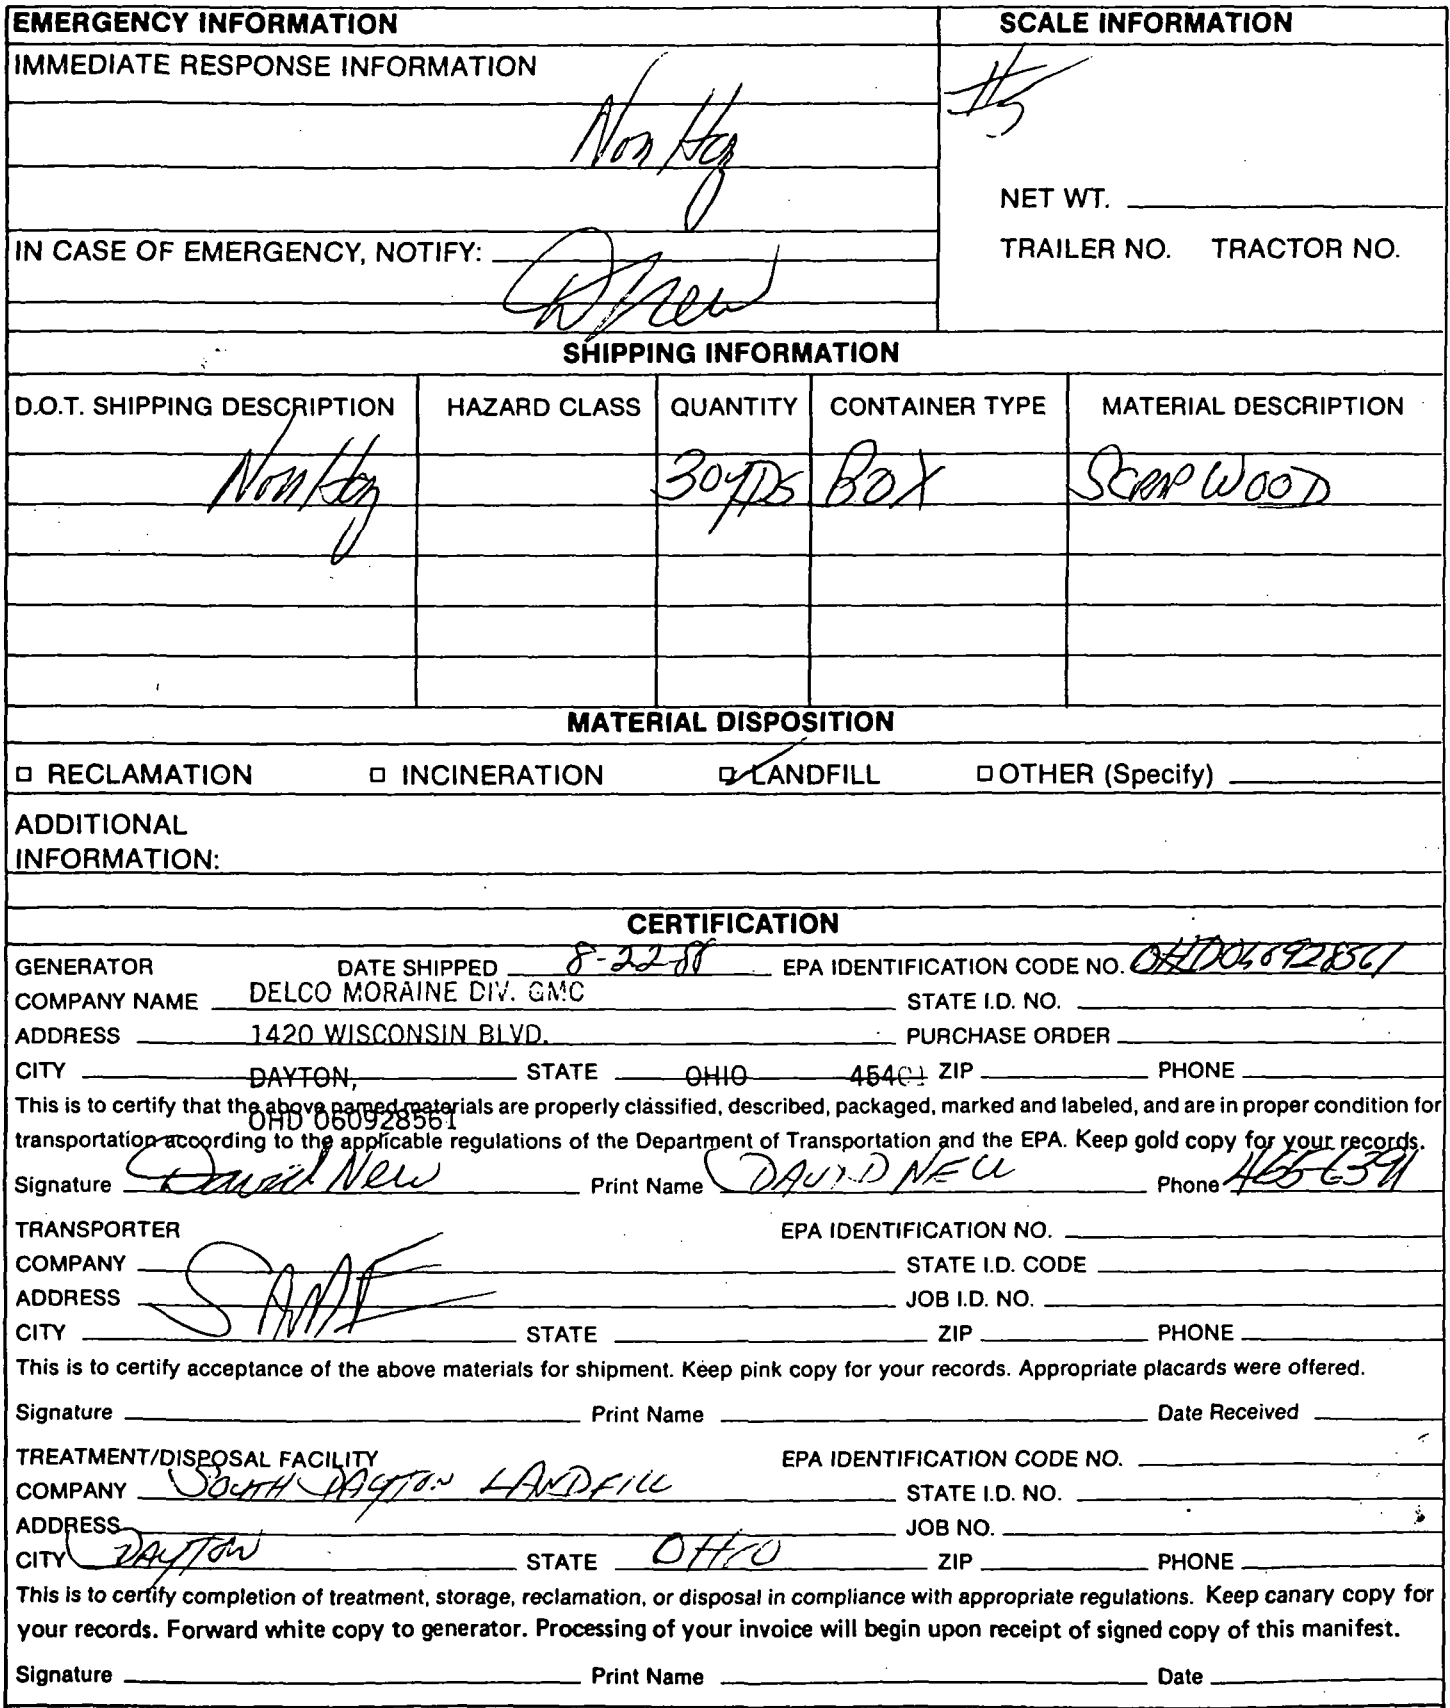 EMERGENCY INFORMATION SCALE INFORMATION
IMMEDIATE RESPONSE INFORMATION
Non Haz
NET WT.
IN CASE OF EMERGENCY, NOTIFY: TRAILER NO. TRACTOR NO.
D New
SHIPPING INFORMATION
D.O.T. SHIPPING DESCRIPTION HAZARD CLASS QUANTITY CONTAINER TYPE MATERIAL DESCRIPTION
Non Haz 30 YDS BOX SCRAP WOOD
MATERIAL DISPOSITION
RECLAMATION INCINERATION LANDFILL OTHER (Specify)
ADDITIONAL
INFORMATION:
CERTIFICATION
GENERATOR DATE SHIPPED 8-22-88 EPA IDENTIFICATION CODE NO. OHD060928561
COMPANY NAME DELCO MORAINE DIV. GMC STATE I.D. NO.
ADDRESS 1420 WISCONSIN BLVD. PURCHASE ORDER
CITY DAYTON, STATE OHIO 45401 ZIP PHONE
This is to certify that the above named materials are properly classified, described, packaged, marked and labeled, and are in proper condition for
OHD 060928561
transportation according to the applicable regulations of the Department of Transportation and the EPA. Keep gold copy for your records.
Signature David New Print Name DAVID NEW Phone 455 6391
TRANSPORTER EPA IDENTIFICATION NO.
COMPANY STATE I.D. CODE
SAME
ADDRESS JOB I.D. NO.
CITY STATE ZIP PHONE
This is to certify acceptance of the above materials for shipment. Keep pink copy for your records. Appropriate placards were offered.
Signature Print Name Date Received
TREATMENT/DISPOSAL FACILITY EPA IDENTIFICATION CODE NO.
COMPANY SOUTH DAYTON LANDFILL STATE I.D. NO.
ADDRESS JOB NO.
CITY DAYTON STATE OHIO ZIP PHONE
This is to certify completion of treatment, storage, reclamation, or disposal in compliance with appropriate regulations. Keep canary copy for
your records. Forward white copy to generator. Processing of your invoice will begin upon receipt of signed copy of this manifest.
Signature Print Name Date